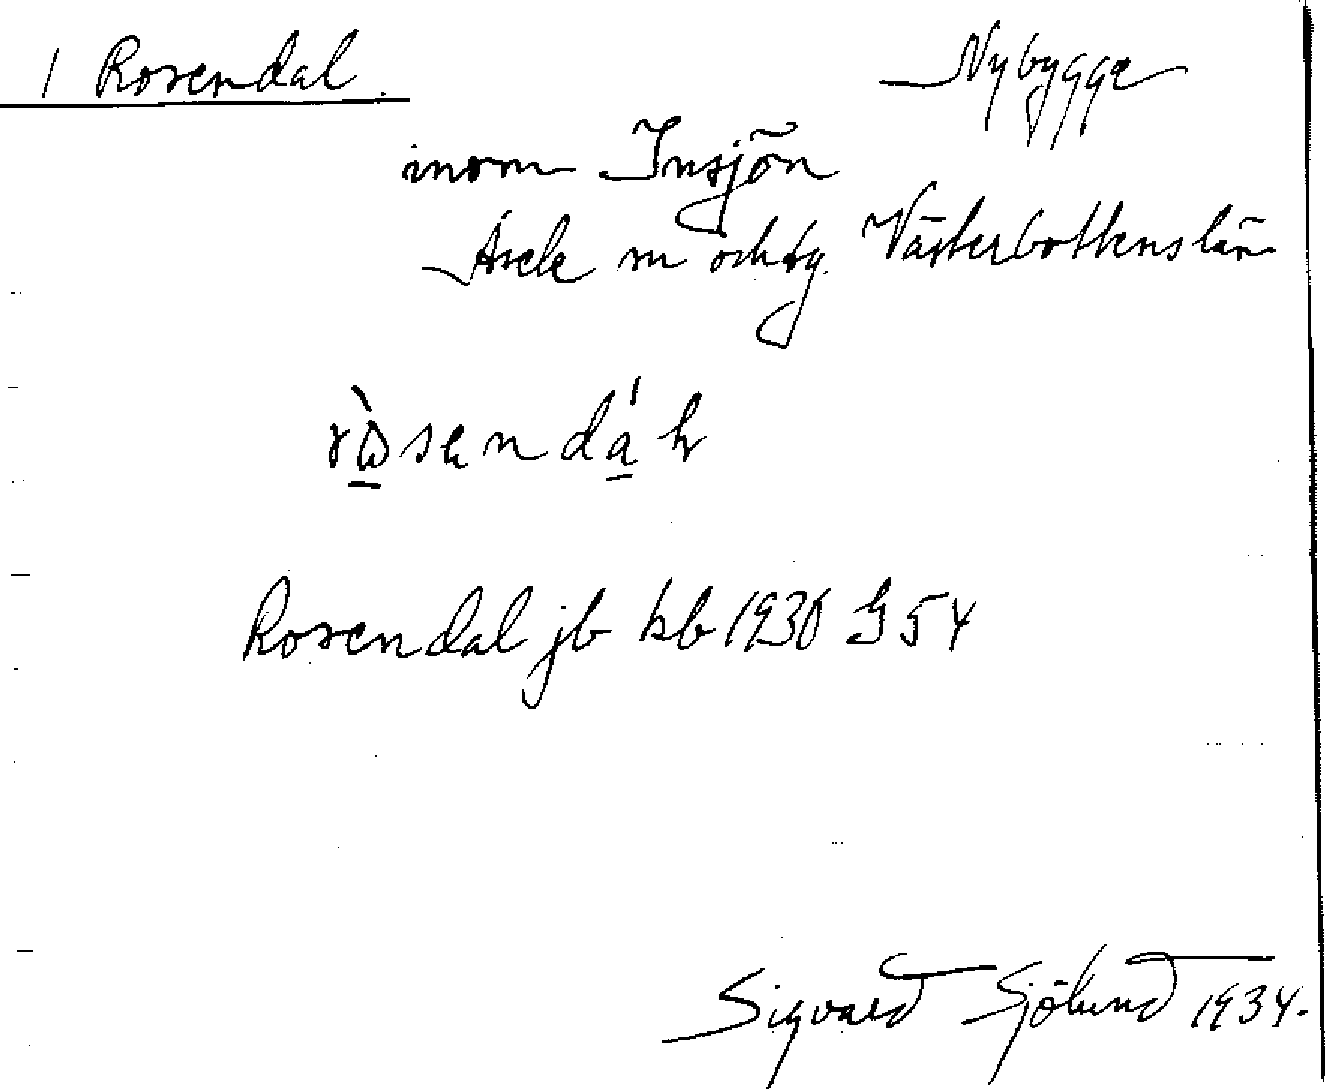 1 Rosendal. Nybygge
inom Insjön
Åsele sn och tg. Västerbottens län
Rosendal jb kb 1930 G 54
Sigvard Sjölund 1934.